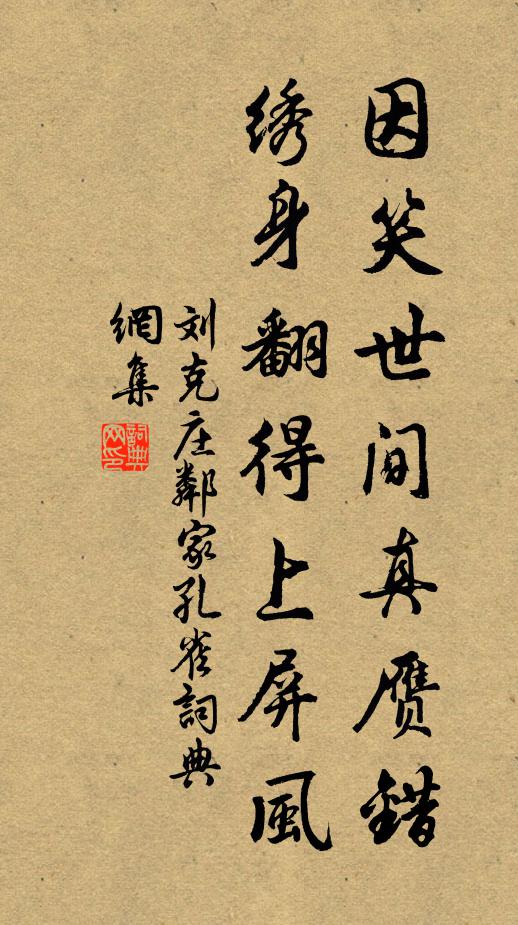 因笑世间真赝錯
绣身翻得上屏風
刘克庄鄰家孔雀詞典
網集
詞典
网印